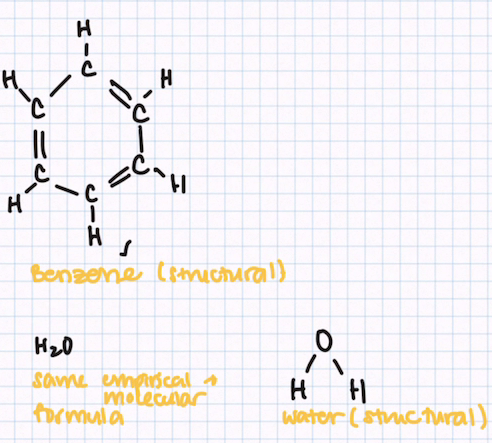 H
H C H
C C
C C
H C H
H
Benzene (structural)
H₂O
same empirical +
molecular
formula
O
H H
water (structural)